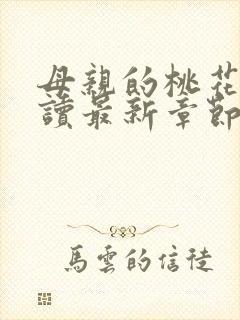 母親的桃花
讀最新章節
馬雲的信徒